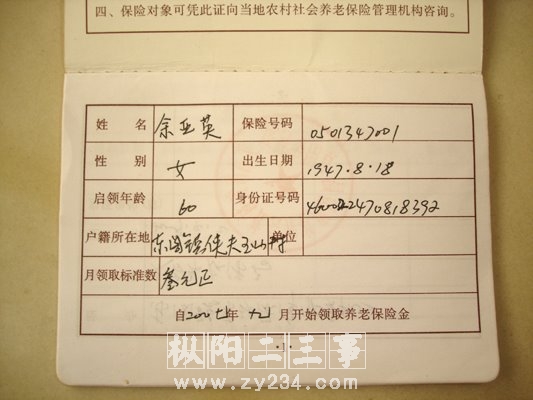 四、保险对象可凭此证向当地农村社会养老保险管理机构咨询。
姓 名 余亚英 保险号码 0501347001
性 别 女 出生日期 1947.8.18
启领年龄 60 身份证号码
户籍所在地 单位
月领取标准数 叁元正
自200七年 月开始领取养老保险金
·1·
枞阳二三事
www.zy234.com